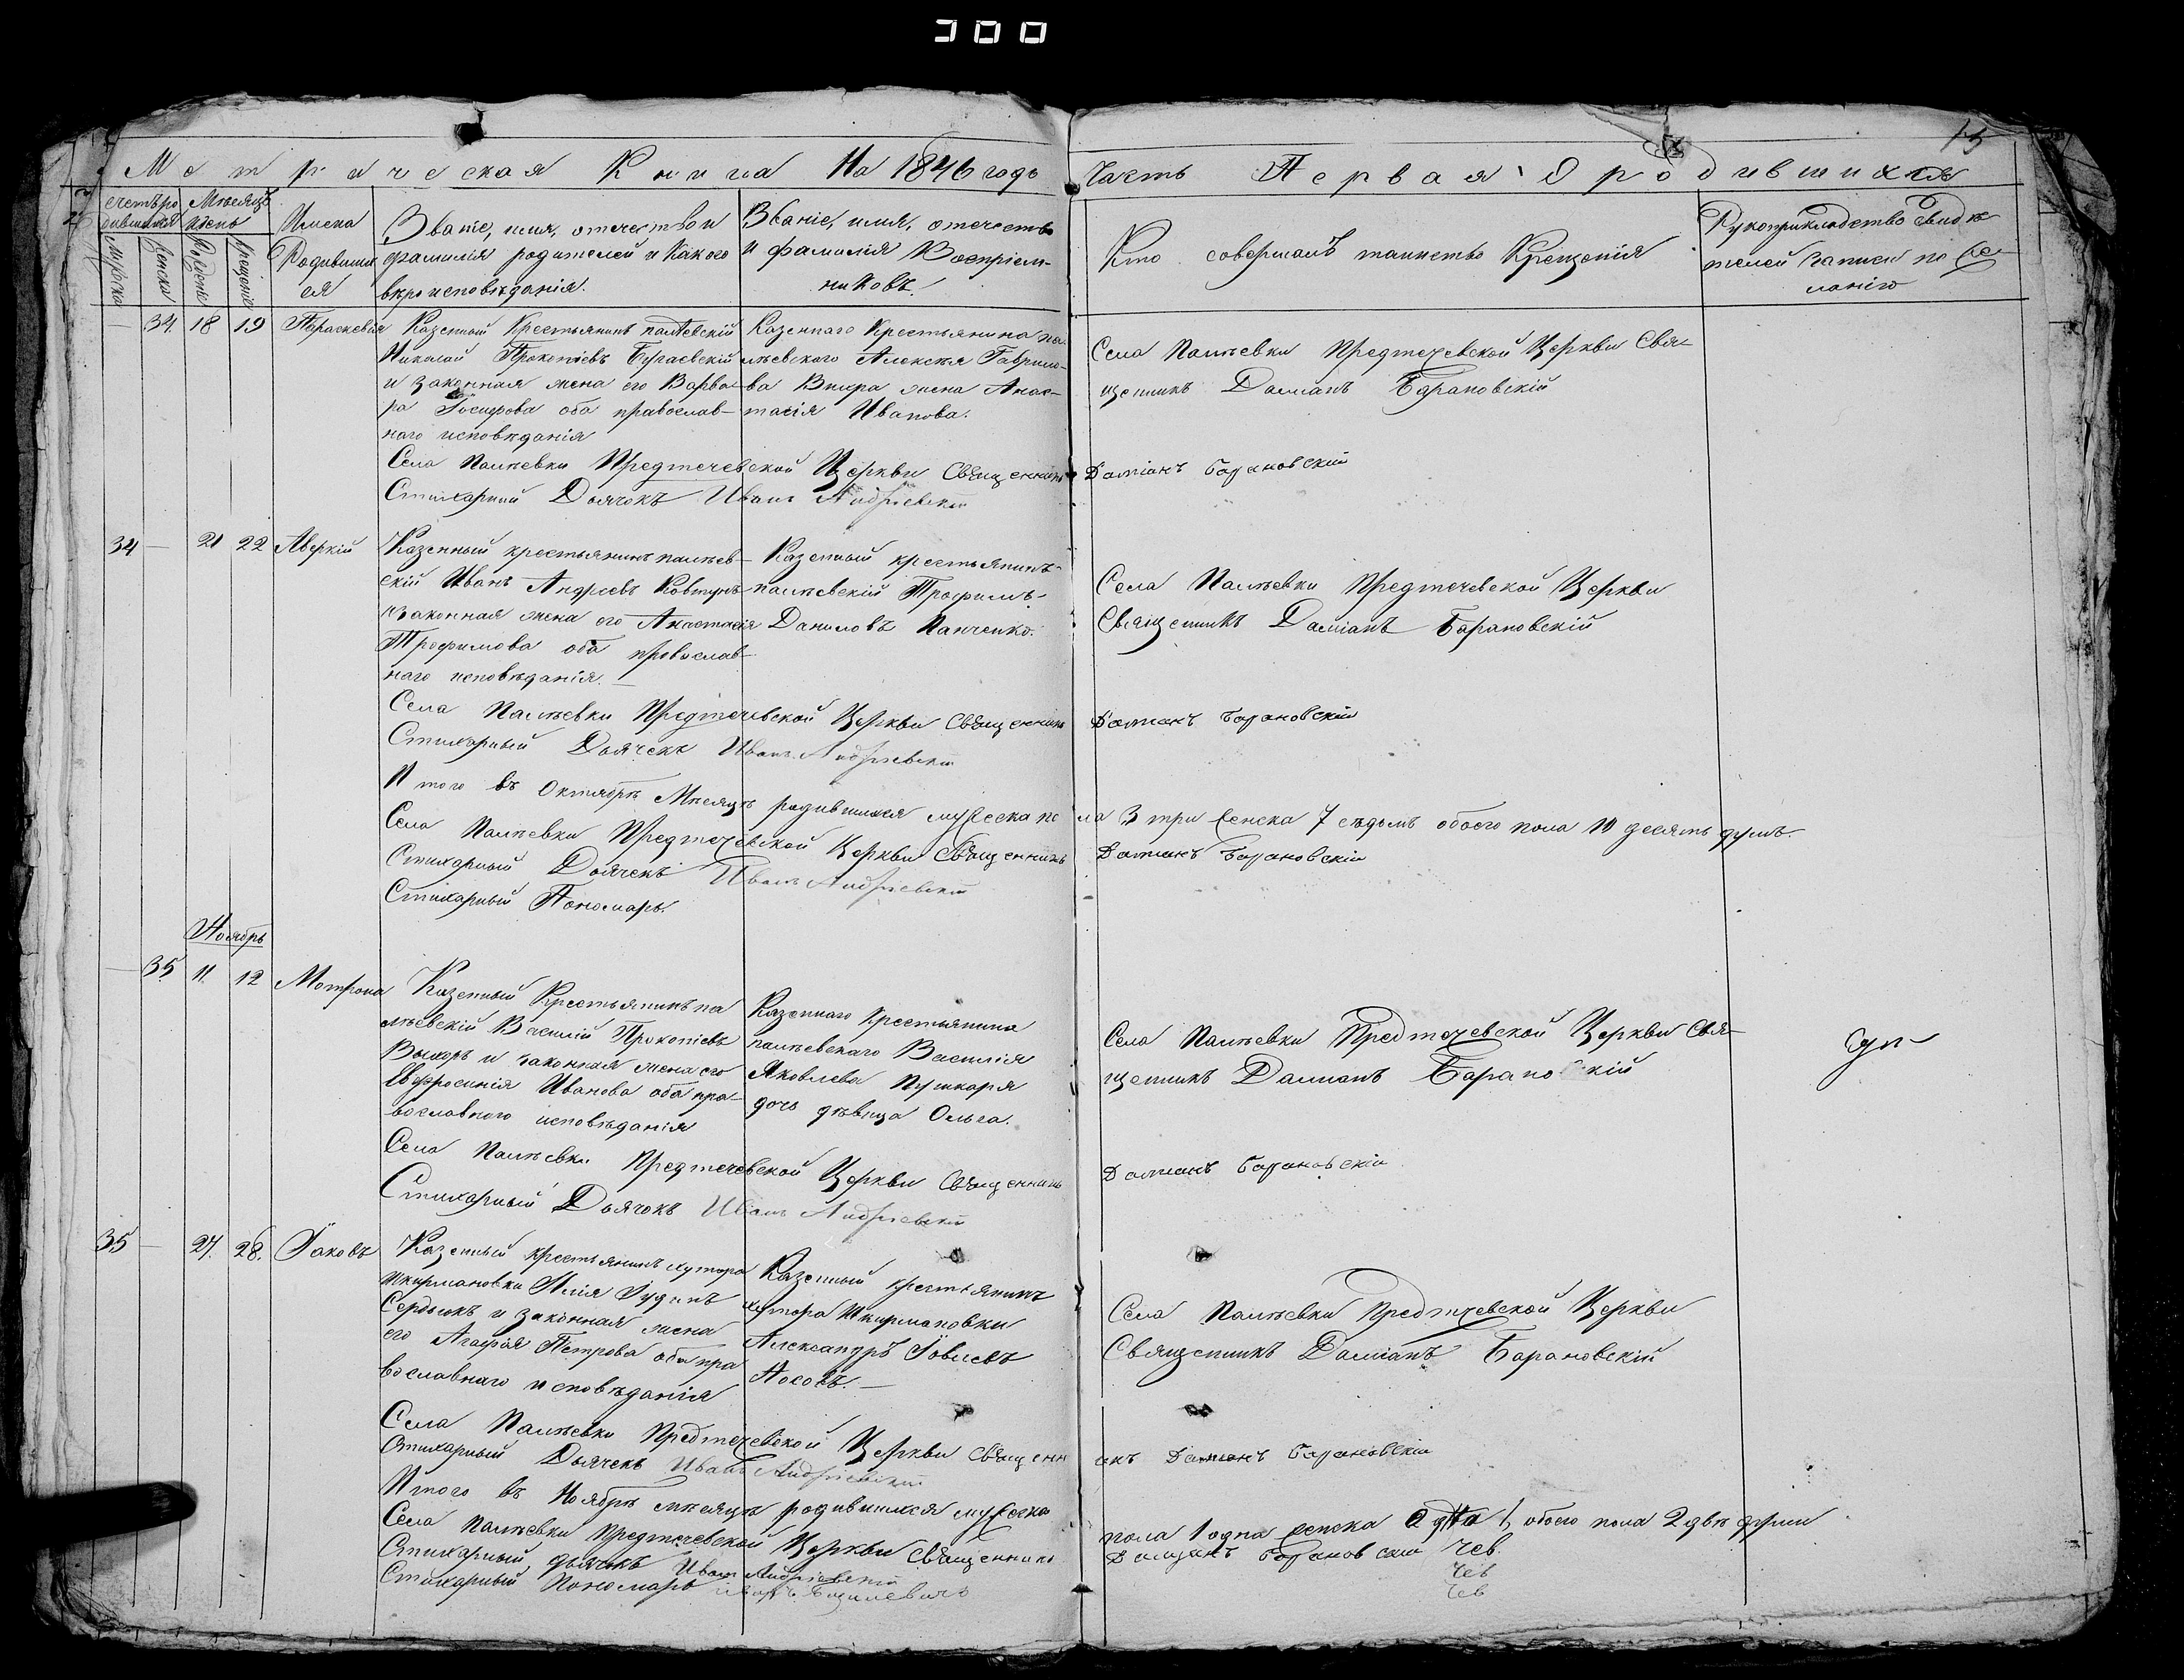 300
15
Метрическая Книга На 1846 годъ Часть Первая О родившихся
счетъ ро
дившихся
Мѣсяцъ
и день
Имена
Родивших
ся
Званіе, имя, отечество и
фамилія родителей и какого
вѣроисповѣданія.
Званіе, имя, отечество
и фамилія Воспріем-
никовъ.
Кто совершалъ таинство Крещенія
Рукоприкладство свидѣ
телей записи по же-
ланію
мужска
женска
Рожденіе
крещеніе
— 34. 18 19 Параскевія
Казенный Крестьянинъ палѣевскій
Николай Прокопіевъ Бугаевскій
и законная жена его Варва-
ра Іосифова оба православ-
наго исповѣданія
Казеннаго Крестьянина па-
лѣевского Алексѣя Гаврило-
ва жена Анас-
тасія Иванова.
Села Палѣевки Предтечевской Церкви Свя-
щенникъ Даміанъ Барановскій
Села Палѣевки Предтечевской Церкви Священникъ Даміанъ Барановскій
Стихарный Дьячокъ Иванъ Андріевскій
34 — 21 22 Аверкій
Казенный крестьянинъ палѣев-
скій Иванъ Андреевъ Ковтунъ
законная жена его Анастасія
Трофимова оба православ-
наго исповѣданія. —
Казенный крестьянинъ
палѣевскій Трофимъ
Даниловъ Панченко.
Села Палѣевки Предтечевской Церкви
Священникъ Даміанъ Барановскій
Села Палѣевки Предтечевской Церкви Священникъ Даміанъ Барановскій
Стихарный Дьячекъ Иванъ Андріевскій
Итого въ Октябрѣ Мѣсяцѣ родившихся мужеска пола 3 три женска 7 седьмъ обоего пола 10 десять душъ.
Села Палѣевки Предтечевской Церкви Священникъ Даміанъ Барановскій
Стихарный Дьячекъ Иванъ Андріевскій
Стихарный Пономарь.
Ноябрь
— 35. 11. 12 Мотрона
Казенный Крестьянинъ па
лѣевскій Василій Прокопіевъ
и законная жена его
Евфросинія Иванова оба пра-
вославного исповѣданія
Казеннаго Крестьянина
палѣевскаго Василія
Яковлева Пушкаря
дочь дѣвица Ольга.
Села Палѣевки Предтечевской Церкви Свя-
щенникъ Даміанъ Барановскій
Села Палѣевки Предтечевской Церкви Священникъ Даміанъ Барановскій
Стихарный Дьячокъ Иванъ Андріевскій
35 — 27. 28. Іаковъ
Казенный крестьянинъ хутора
Шкурмановки Илія Іудинъ
Сердюкъ и законная жена
его Агафія Петрова оба пра
вославнаго исповѣданія
Казенный крестьянинъ
хутора Шкурмановки
Александръ Іовлевъ
Носовъ. —
Села Палѣевки Предтечевской Церкви
Священникъ Даміанъ Барановскій
Села Палѣевки Предтечевской Церкви Священникъ Даміанъ Барановскій
Стихарный Дьячекъ Иванъ Андріевскій
Итого въ Ноябрѣ мѣсяцѣ родившихся мужеска пола 1 одна женска одна 1, обоего пола 2 двѣ души
Села Палѣевки Предтечевской Церкви Священникъ Даміанъ Барановскій
Стихарный дьячекъ Иванъ Андріевскій
Стихарный Пономарь Базилевичъ